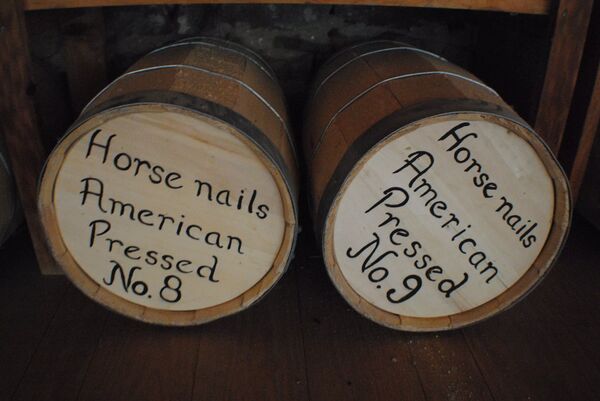 Horse nails
American
Pressed
No. 8
Horse nails
American
Pressed
No. 9